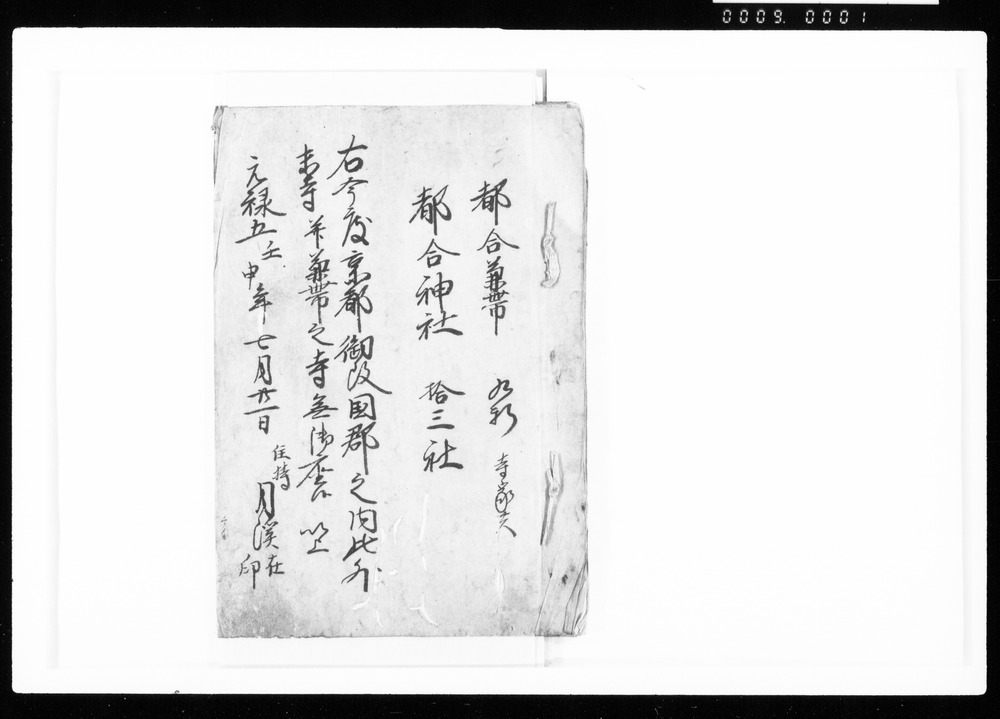 0009. 0001
都合兼帯 九ヶ所 寺家共
都合神社 拾三社
右今度京都御改国郡之内此外
末寺并兼帯之寺無御座候 以上
元禄五壬申年 七月廿一日
住持 月溪 在印